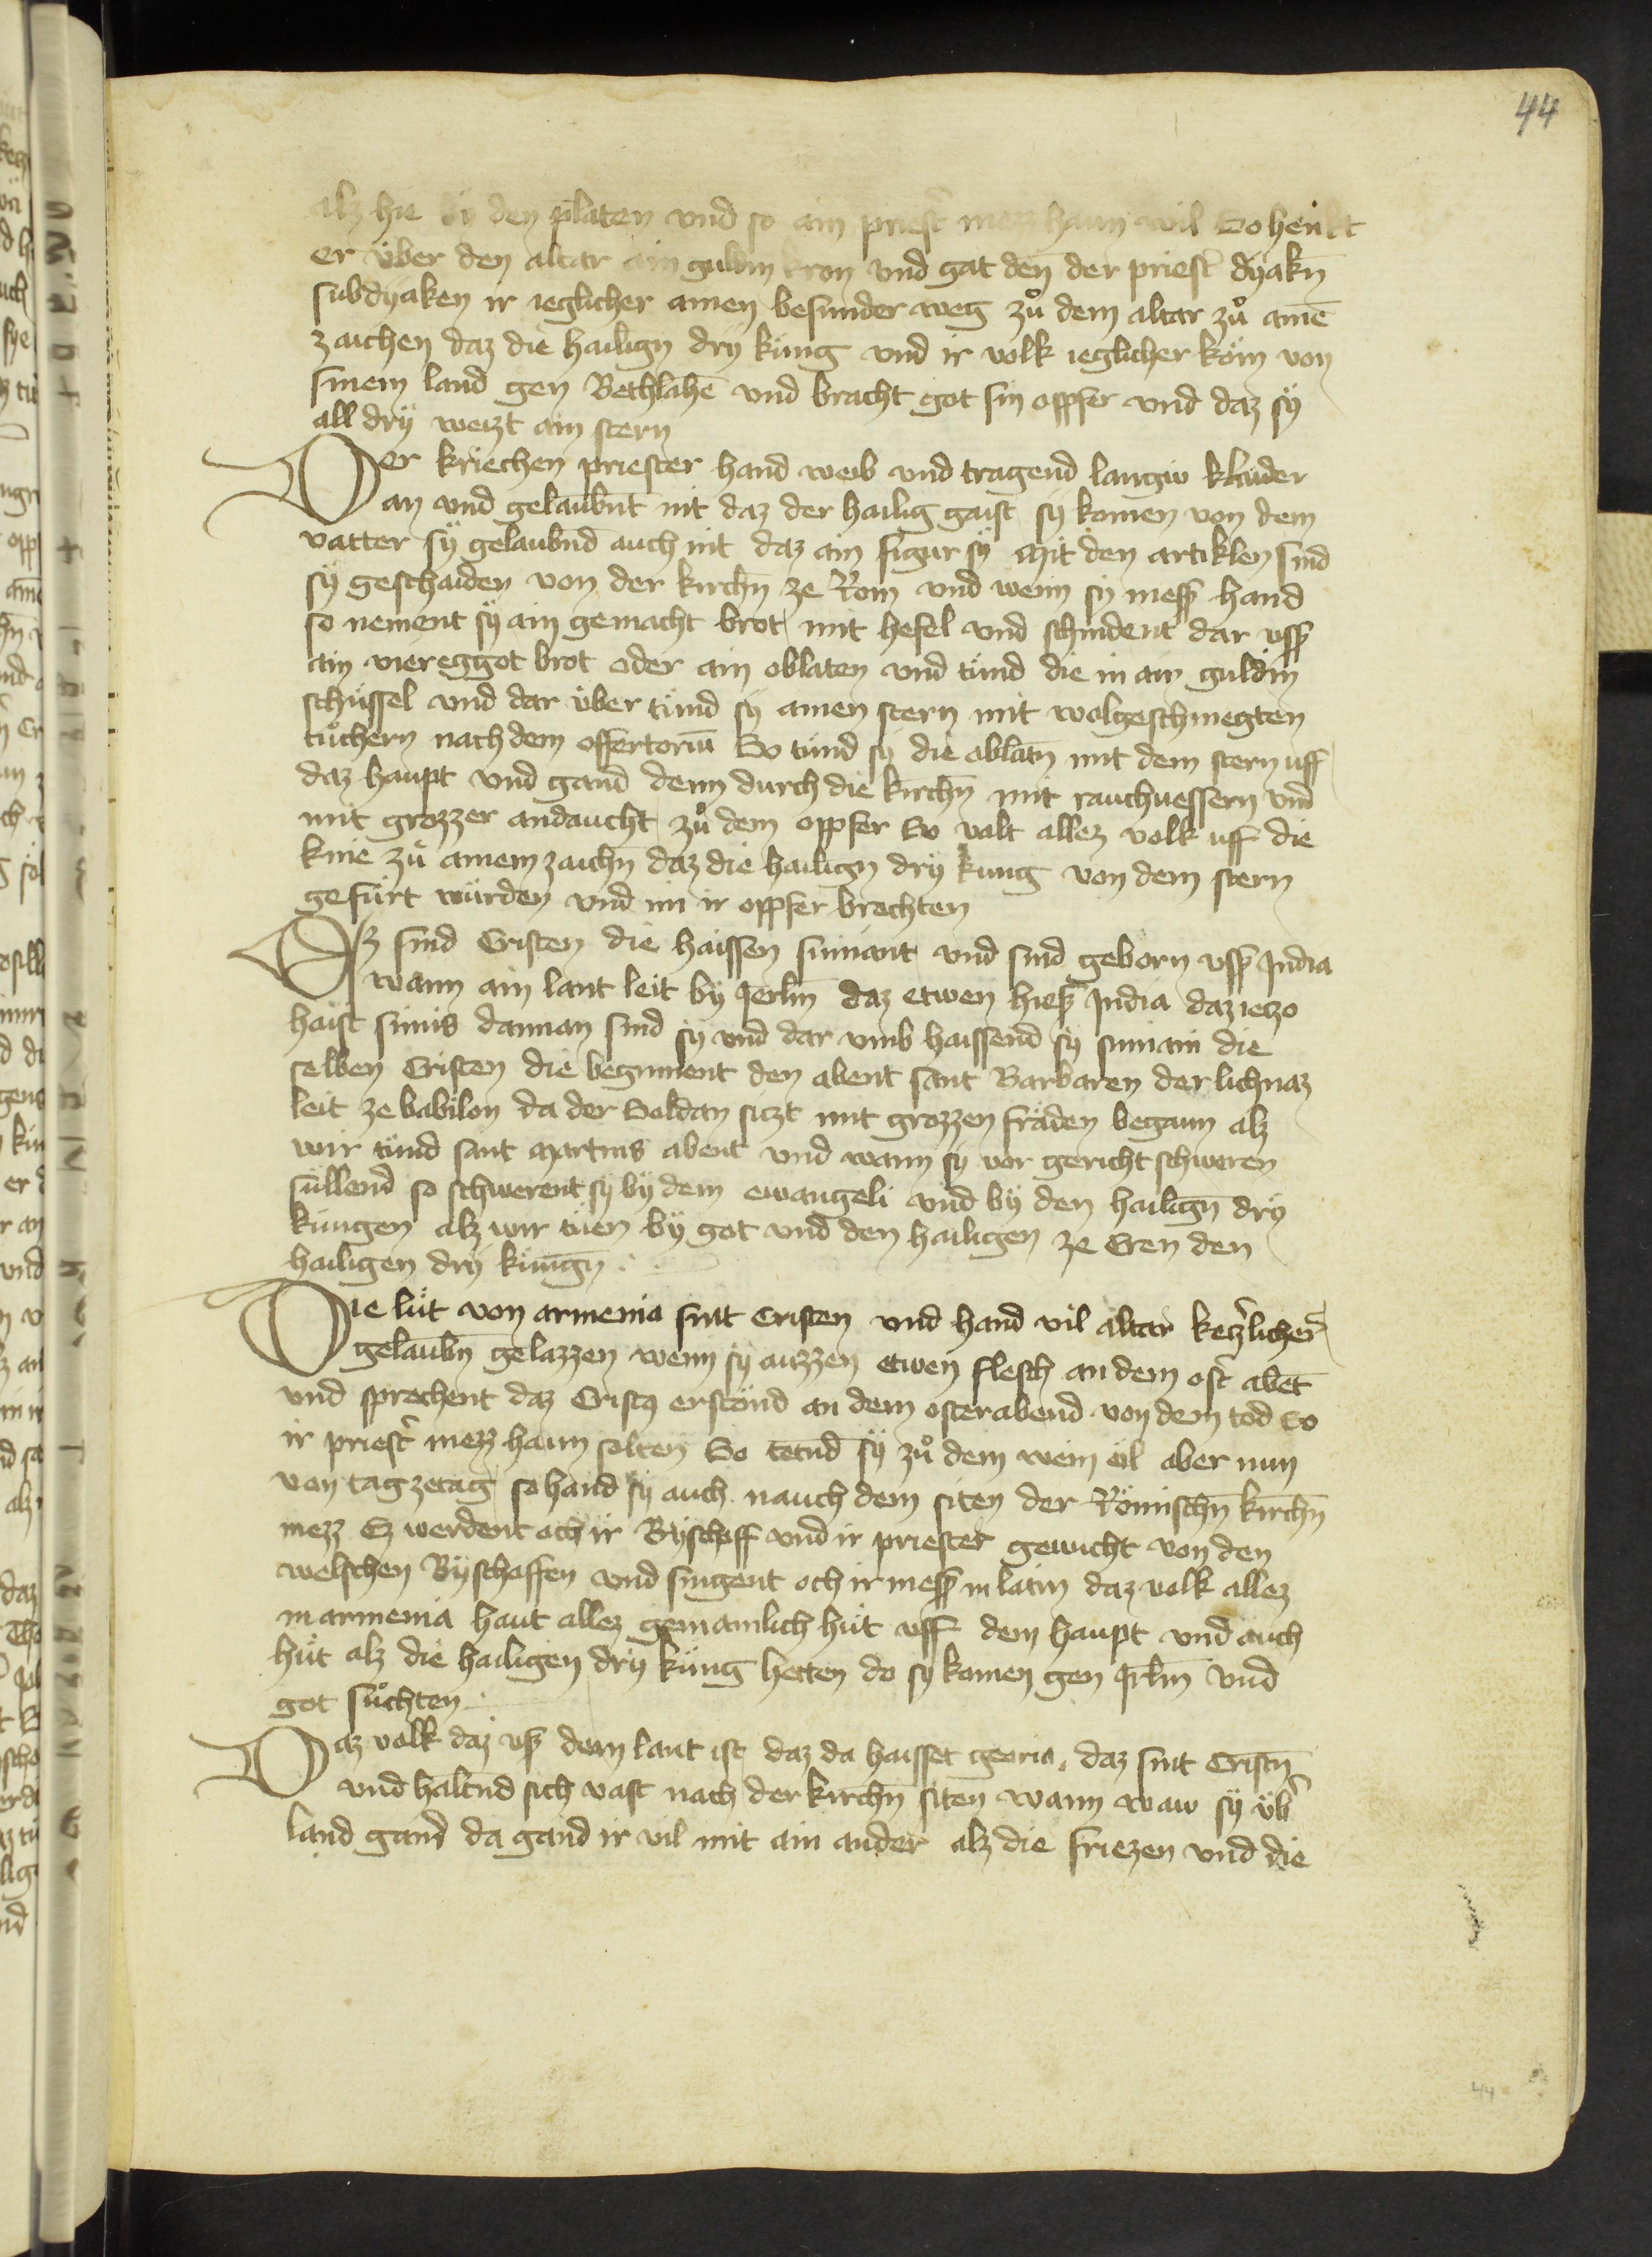 44
alz hie by den platen vnd so ain priest̾ mezz haun wil So henkt
er über den altar ain guldin kron vnd gat den̄ der priest̾ dyakn̄
subdyaken ir ieglicher ainen besunder weg zů dem altar zů aine̅
zaichen daz die hailign̄ dry küng vnd ir volk ieglicher köm von
sinem land gen Bethlahe̅ vnd bracht got sin opfer vnd daz sÿ
all drÿ weizt ain stern
Der kriechen priester hand weib vnd tragend langiv klaider
an vnd gelaubn̄t nit daz der hailig gaist sy komen von dem
vatter sÿ gelaubn̄d auch nit daz ain figur sÿ Mit den artiklen sind
sÿ geschaiden von der kirchn̄ ze Rom vnd wenn sy mess hand
so nement sÿ ain gemacht brot mit hefel vnd schnident dar vss
ain viereggot brot oder ain oblaten vnd tůnd die in ain guldin
schüssel vnd dar über tünd sÿ ainen stern mit wolgeschmegten
tüchern nach dem offertoriu̅ So tünd sÿ die oblatn̄ mit dem stern uff
daz haupt vnd gand denn durch die kirchn̄ mit rauchvessern vnd
mit grozzer andaucht zů dem opfer So valt allez volk uff die
knie zů ainem zaichn̄ daz die hailign̄ dry kung von dem stern
gefürt wurden vnd im ir opfer brechten
Ez sind Cristen die haissen suriant vnd sind geborn vss India
wann ain lant leit by Jerlm̄ daz etwen hiess India daz ietzo
haist siriis dannan sind sy vnd dar vmb haissend sÿ suriani die
selben Cristen die beginnent den abent sant Barbaren der lichnaz
leit ze babilon da der Soldan sitzt mit grozzen fräden begann alz
wir tünd sant Martins abent vnd wann sy vor gericht schweren
süllend so schwerent sy bÿ dem ewangeli vnd bÿ den hailign̄ drÿ
küngen alz wir tüen bÿ got vnd den hailigen ze Eren den
hailigen drÿ küngn̄
Die lüt von armenia sint Cristen vnd hand vil altar ketzlicher
gelaubn̄ gelazzen wenn sÿ auzzen etwen flesch an dem ost̾ abe̅t
vnd sprechent daz Crist9 erstönd an dem osterabend von dem tod So
ir priest̾ mezz haun solten So tetn̄d sÿ zů dem wein öl aber nun
von tag ze tag so hand sy auch nauch dem siten der Römischn̄ kirchn̄
mezz Ez werdent och ir Byschoff vnd ir priester gewicht von den
welschen Byschoffen vnd singent och ir mess in latin daz volk allez
in armenia haut allez gemainlich hüt vff dem haupt vnd auch
hüt alz die hailigen drÿ küng hetten do sy komen gen Jrlm̄ vnd
got sůchten
Daz volk daz vss dem lant ist daz da haisset georia. daz sint Cristn̄
vnd haltn̄d sich vast nach der kirchn̄ siten wann waw sÿ üb̾
land gand da gand ir vil mit ain ander alz die friezen vnd die
44